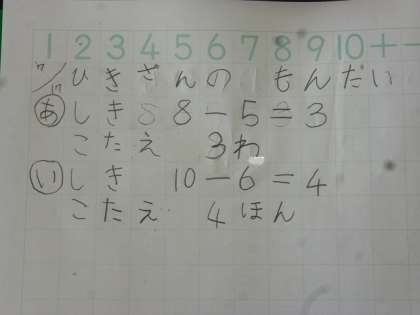 1 2 3 4 5 6 7 8 9 10 + −
7/17 ひきざんの もんだい
あ しき 8 − 5 = 3
こたえ 3わ
い しき 10 − 6 = 4
こたえ 4ほん